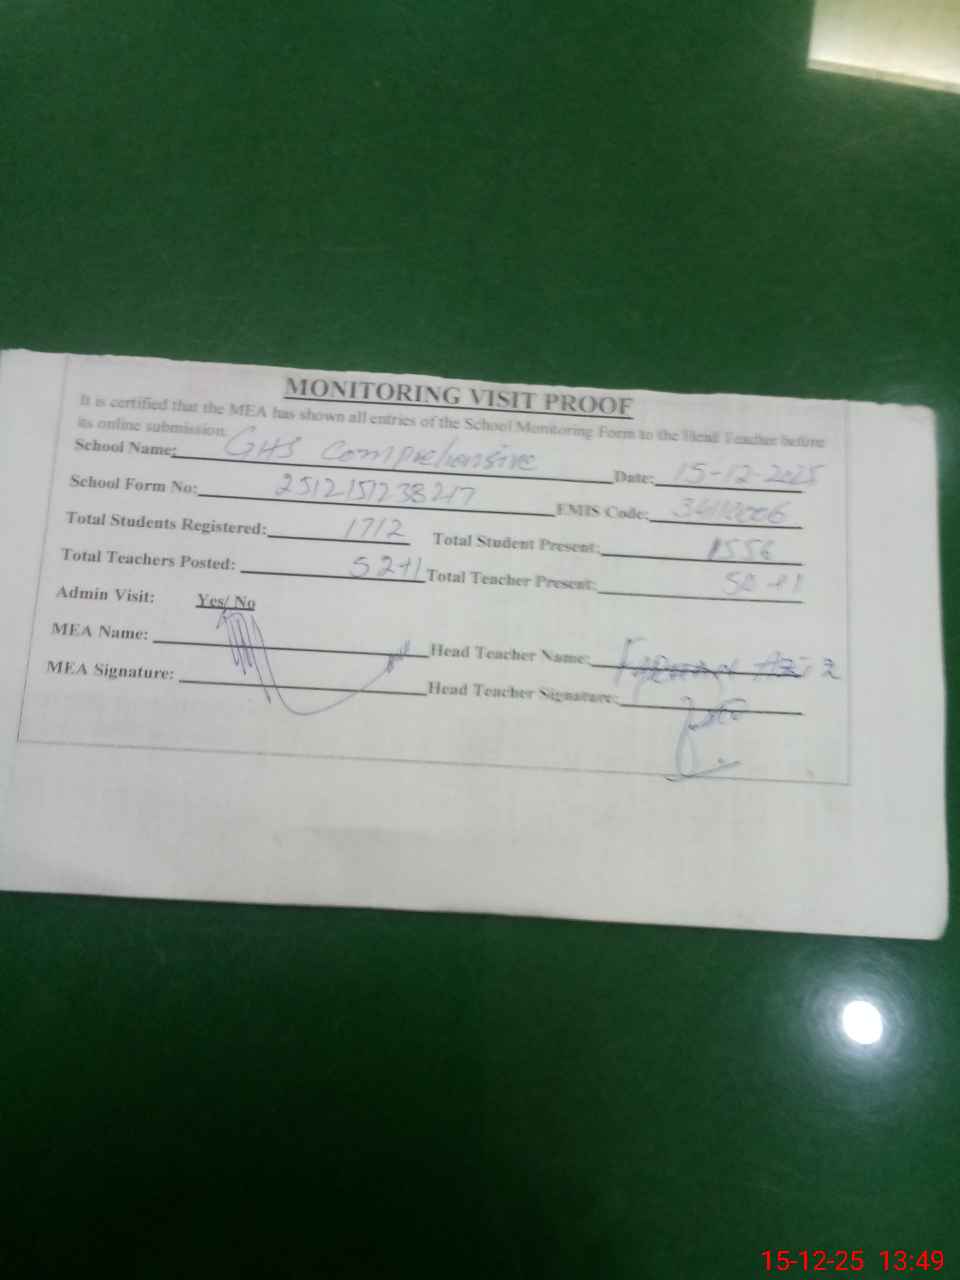 MONITORING VISIT PROOF
It is certified that the MEA has shown all entries of the School Monitoring Form to the Head Teacher before
its online submission.
School Name: GHS Comprehensive Date: 15-12-2025
School Form No: EMIS Code:
Total Students Registered: 1712 Total Student Present: 1556
Total Teachers Posted: 52+1 Total Teacher Present: 52+1
Admin Visit: Yes/ No
MEA Name: Head Teacher Name:
MEA Signature: Head Teacher Signature:
15-12-25 13:49